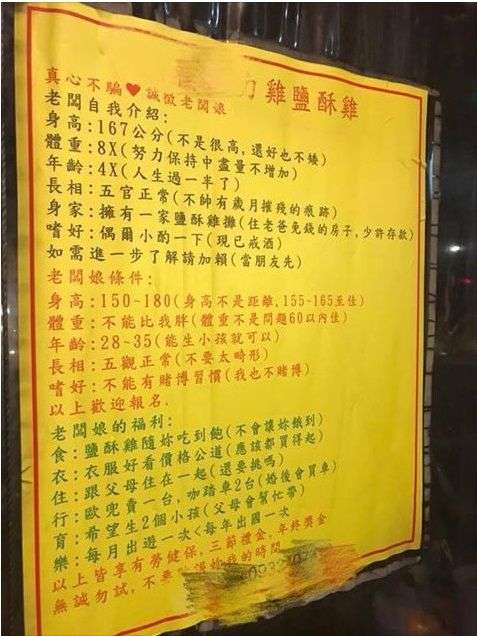 雞鹽酥雞
真心不騙❤誠徵老闆娘
老闆自我介紹:
身高:167公分(不是很高,還好也不矮)
體重:8X(努力保持中盡量不增加)
年齡:4X(人生過一半了)
長相:五官正常(不帥有歲月摧殘的痕跡)
身家:擁有一家鹽酥雞攤(住老爸免錢的房子,少許存款)
嗜好:偶爾小酌一下(現已戒酒)
如需進一步了解請加賴(當朋友先)
老闆娘條件:
身高:150-180(身高不是距離,155-165至佳)
體重:不能比我胖(體重不是問題60以內佳)
年齡:28-35(能生小孩就可以)
長相:五觀正常(不要太畸形)
嗜好:不能有賭博習慣(我也不賭博)
以上歡迎報名.
老闆娘的福利:
食:鹽酥雞隨妳吃到飽(不會讓妳餓到)
衣:衣服好看價格公道(應該都買得起)
住:跟父母住在一起(還要挑嗎)
行:歐兜賣一台,咖踏車2台(婚後會買車)
育:希望生2個小孩(父母會幫忙帶)
樂:每月出遊一次<每年出國一次
以上皆享有勞健保,三節禮金,年終獎金
無誠勿試,不要 妳我的時間